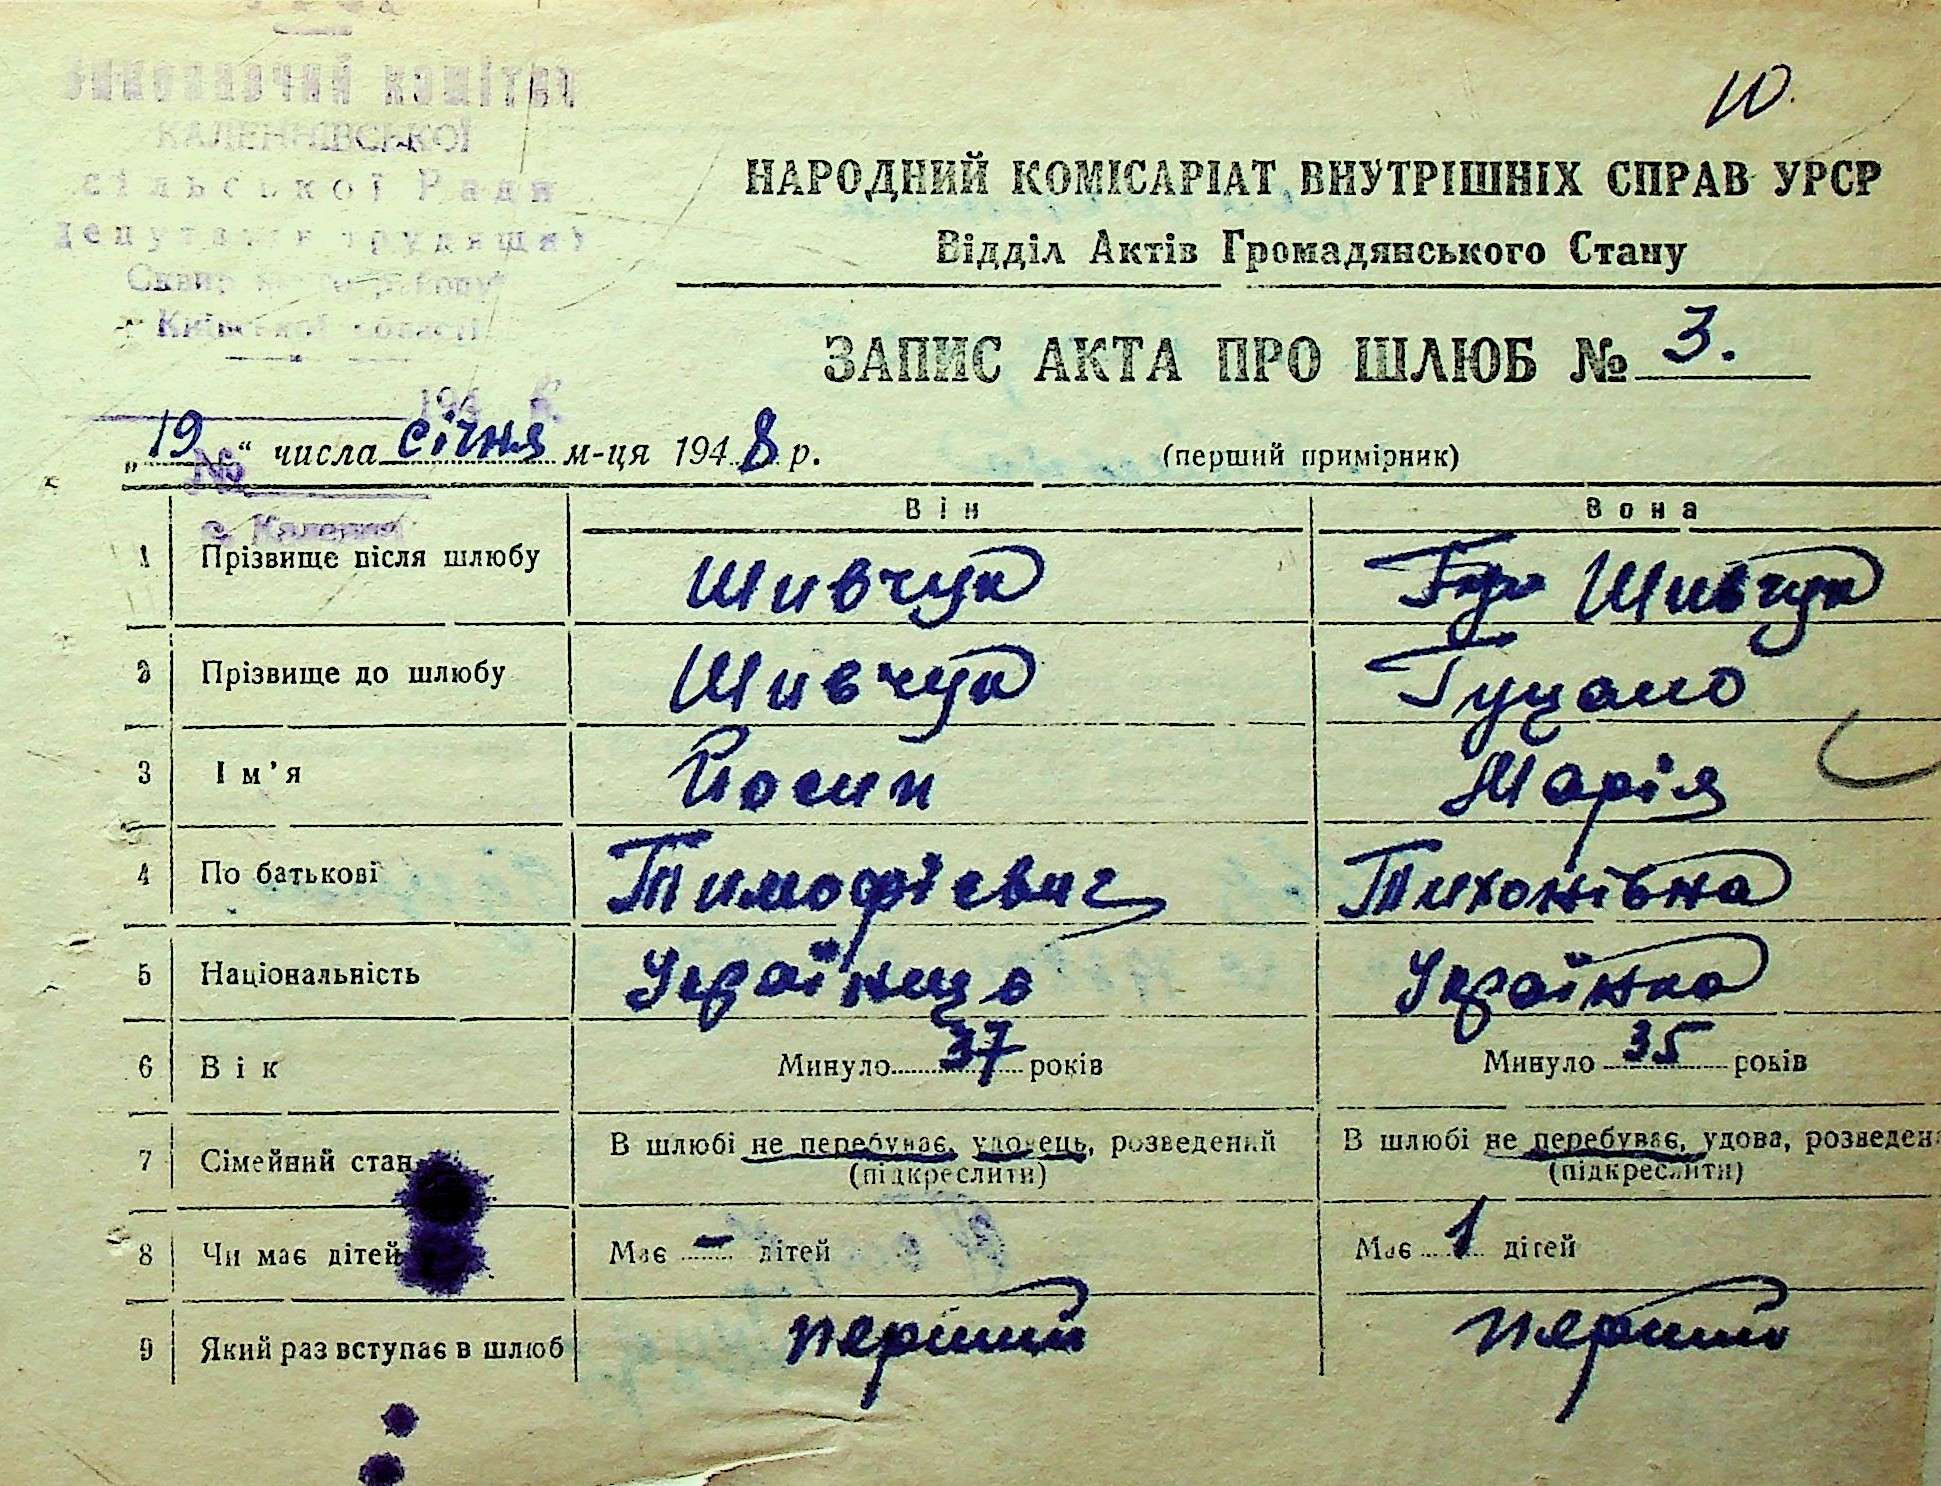 УРСР
ВИКОНАВЧИЙ КОМІТЕТ
КАЛЕННІВСЬКОЇ
сільської Ради
депутатів трудящих
Сквирського району
Київської області
194 8.
№
с. Каленна
10.
НАРОДНИЙ КОМІСАРІАТ ВНУТРІШНІХ СПРАВ УРСР
Відділ Актів Громадянського Стану
ЗАПИС АКТА ПРО ШЛЮБ № 3.
„19“ числа січня м-ця 1948 р.
(перший примірник)
Він Вона
1 Прізвище після шлюбу Шивчук Шивчук
2 Прізвище до шлюбу Шивчук Гуцало
3 Ім’я Йосип Марія
4 По батькові Тимофієвич Тихонівна
5 Національність Українець Українка
6 Вік Минуло 37 років Минуло 35 років
7 Сімейний стан В шлюбі не перебуває, удовець, розведений В шлюбі не перебуває, удова, розведен
(підкреслити) (підкреслити)
8 Чи має дітей Має – дітей Має 1 дітей
9 Який раз вступає в шлюб перший перший